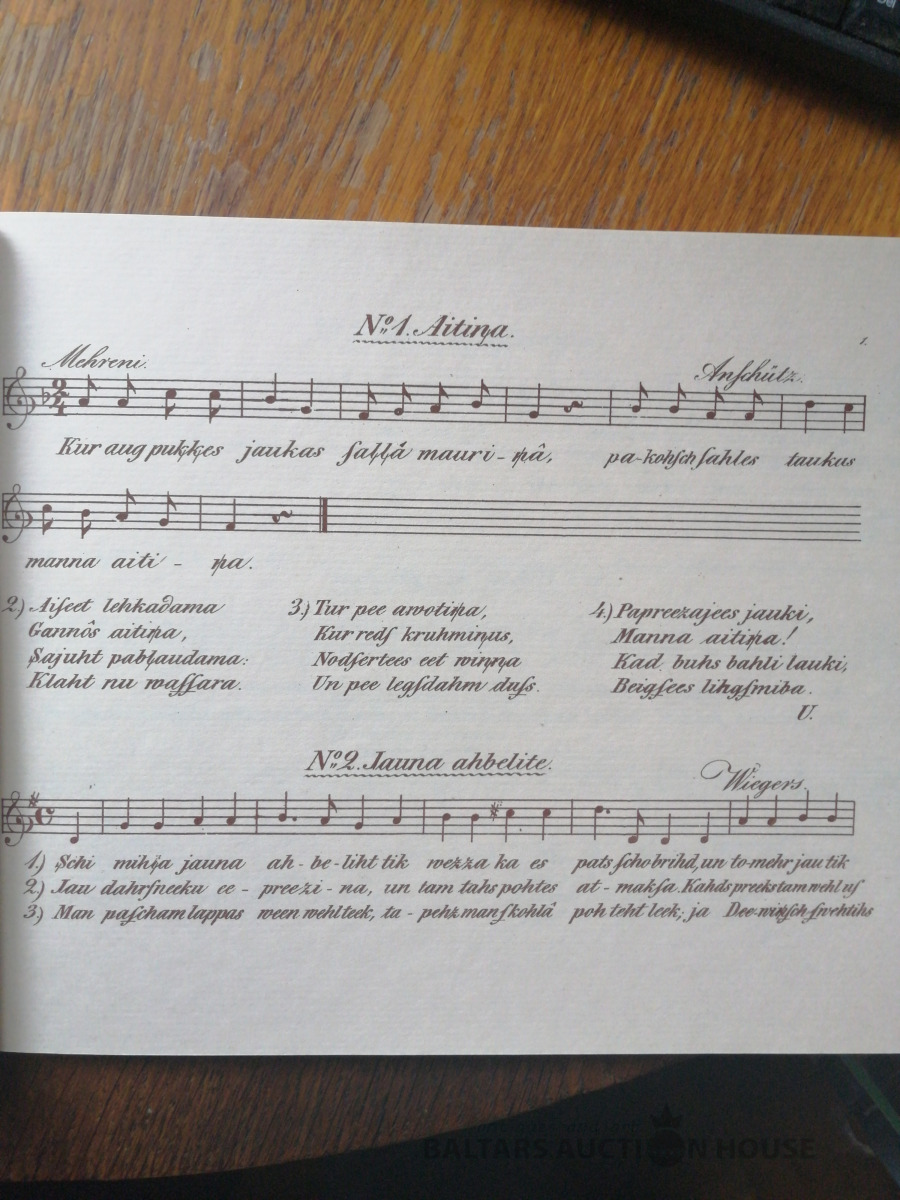 No 1. Aitiņa.
1.
Mehreni.
Anſchütz.
Kur aug puķķes jaukas ſaļļâ mauri-ņâ, pa-kohſch ſahles taukas
manna aiti - ņa.
2.) Aiſeet lehkadama
Gannôs aitiņa,
Sajuht pabļaudama:
Klaht nu waſſara.
3.) Tur pee awotiņa,
Kur redſ kruhmiņus,
Nodſertees eet wiņņa
Un pee legſdahm duſs.
4.) Papreezajees jauki,
Manna aitiņa!
Kad buhs bahli lauki,
Beigſees lihgſmiba.
U.
No 2. Jauna ahbelite.
Wiegers.
1.) Schi mihļa jauna ah-be-liht tik wezza ka es pats ſchobrihd, un to-mehr jau tik
2.) Jau dahrſneeku ee-preezi-na, un tam tahs pohtes at-makſa. Kahds preeks tam wehl uſ
3.) Man paſcham lappas ween wehl teek, ta-pehz man ſkohlâ poh teht leek; ja Deewiņſch ſwehtihs
BALTARS AUCTION HOUSE